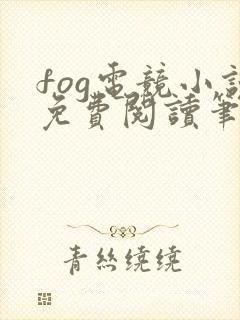 fog電競小說
免費閱讀筆
青絲繞繞